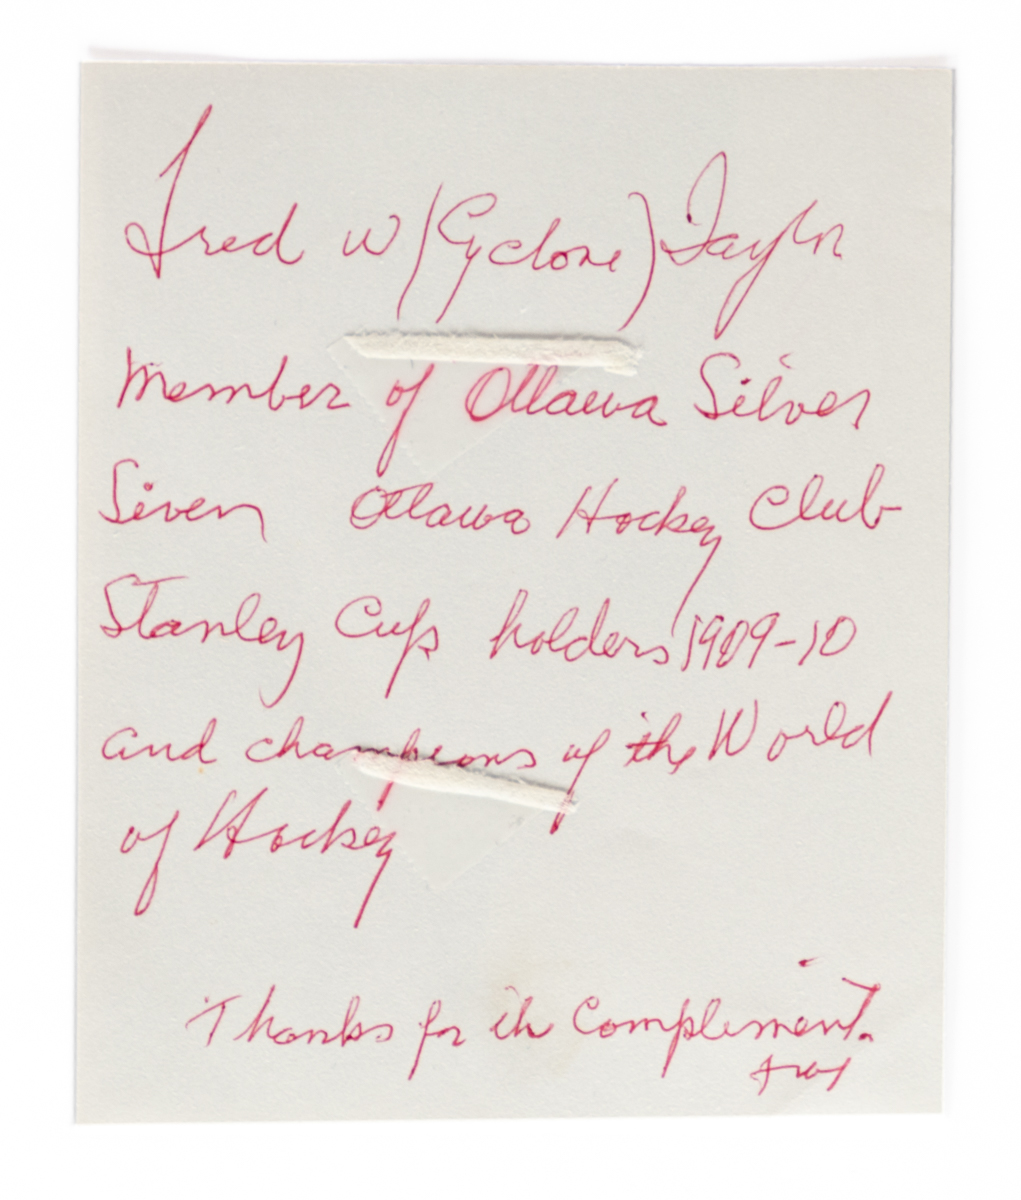 Fred W (Cyclone) Taylor
Member of Ottawa Silver
Seven Ottawa Hockey Club
Stanley Cup holders 1909-10
and champions of the World
of Hockey
Thanks for the Compliment.
FWT